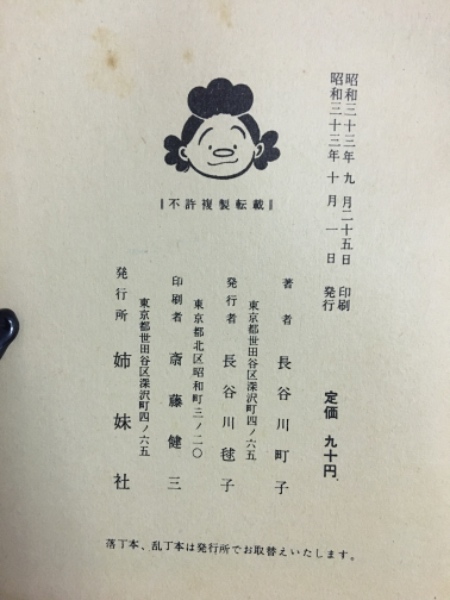 昭和三十三年 九 月二十五日 印刷
昭和三十三年 十 月 一 日 発行
不許複製転載
定価 九十円
著者 長谷川町子
東京都世田谷区深沢町四ノ六五
発行者 長谷川毬子
東京都北区昭和町三ノ二〇
印刷者 斎藤健三
東京都世田谷区深沢町四ノ六五
発行所 姉妹社
落丁本、乱丁本は発行所でお取替えいたします。